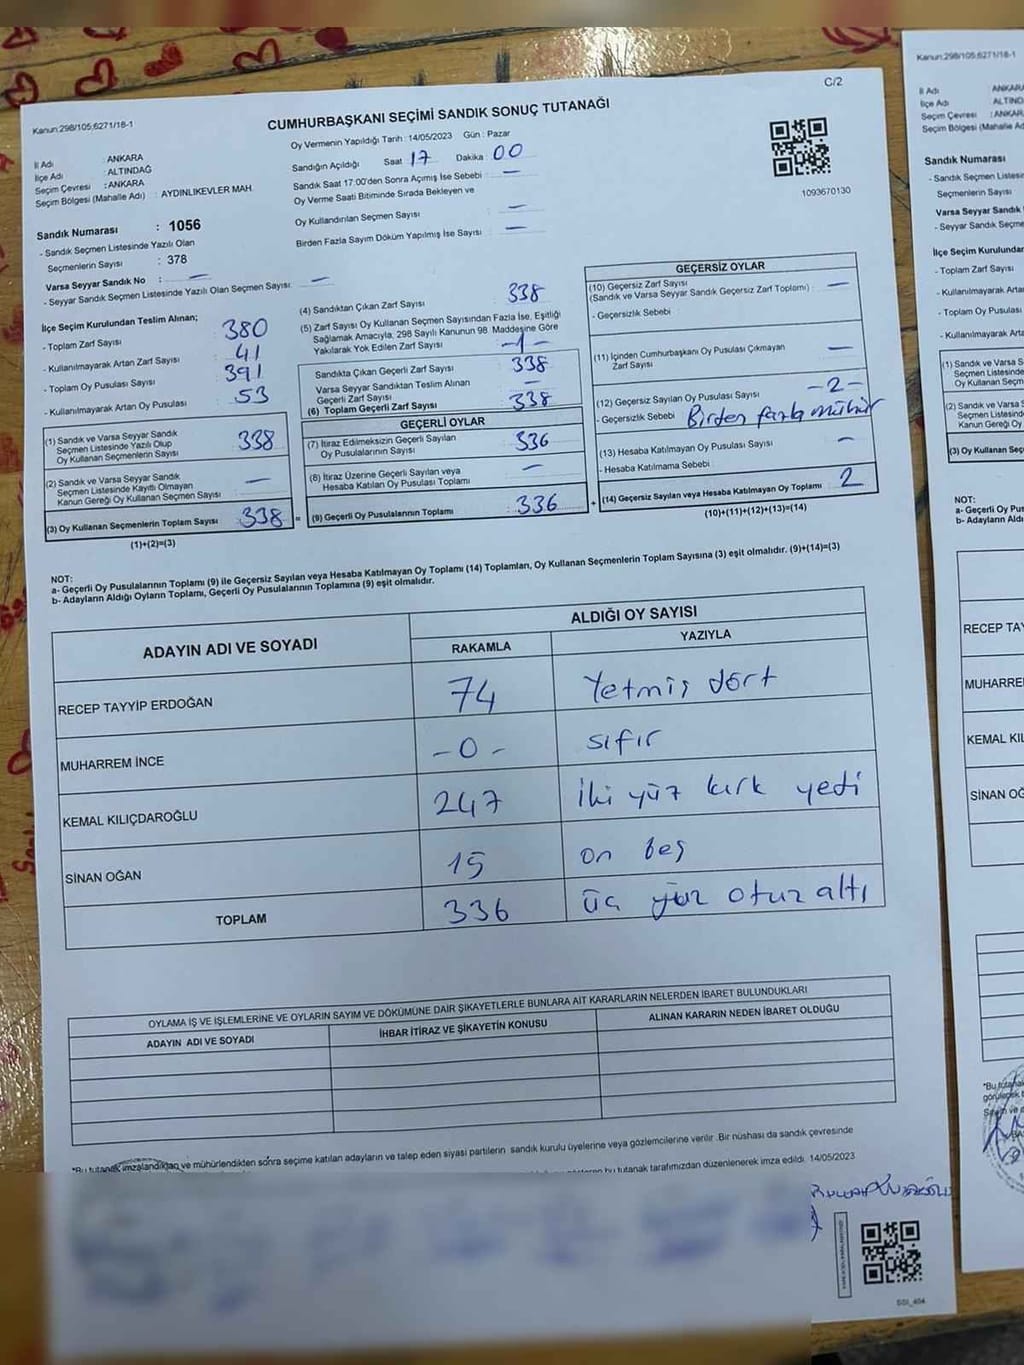 C/2
Kanun:298/105;6271/18-1
CUMHURBAŞKANI SEÇİMİ SANDIK SONUÇ TUTANAĞI
İl Adı : ANKARA
İlçe Adı : ALTINDAĞ
Seçim Çevresi : ANKARA
Seçim Bölgesi (Mahalle Adı) : AYDINLIKEVLER MAH.
Sandık Numarası : 1056
- Sandık Seçmen Listesinde Yazılı Olan
Seçmenlerin Sayısı : 378
Varsa Seyyar Sandık No : —
- Seyyar Sandık Seçmen Listesinde Yazılı Olan Seçmen Sayısı: —
Oy Vermenin Yapıldığı Tarih : 14/05/2023 Gün : Pazar
Sandığın Açıldığı Saat 17 Dakika : 00
Sandık Saat 17:00'den Sonra Açımış İse Sebebi : —
Oy Verme Saati Bitiminde Sırada Bekleyen ve
Oy Kullandırılan Seçmen Sayısı : —
Birden Fazla Sayım Döküm Yapılmış İse Sayısı : —
1093670130
İlçe Seçim Kurulundan Teslim Alınan;
- Toplam Zarf Sayısı : 380
- Kullanılmayarak Artan Zarf Sayısı : 41
- Toplam Oy Pusulası Sayısı : 391
- Kullanılmayarak Artan Oy Pusulası : 53
(1) Sandık ve Varsa Seyyar Sandık
Seçmen Listesinde Yazılı Olup
Oy Kullanan Seçmenlerin Sayısı : 338
(2) Sandık ve Varsa Seyyar Sandık
Seçmen Listesinde Kayıtlı Olmayan
Kanun Gereği Oy Kullanan Seçmen Sayısı : —
(3) Oy Kullanan Seçmenlerin Toplam Sayısı : 338 =
(1)+(2)=(3)
(4) Sandıktan Çıkan Zarf Sayısı : 338
(5) Zarf Sayısı Oy Kullanan Seçmen Sayısından Fazla İse, Eşitliği
Sağlamak Amacıyla, 298 Sayılı Kanunun 98. Maddesine Göre
Yakılarak Yok Edilen Zarf Sayısı
Sandıkta Çıkan Geçerli Zarf Sayısı : 338
Varsa Seyyar Sandıktan Teslim Alınan
Geçerli Zarf Sayısı : —
(6) Toplam Geçerli Zarf Sayısı : 338
GEÇERLİ OYLAR
(7) İtiraz Edilmeksizin Geçerli Sayılan
Oy Pusulalarının Sayısı : 336
(8) İtiraz Üzerine Geçerli Sayılan veya
Hesaba Katılan Oy Pusulası Toplamı : —
(9) Geçerli Oy Pusulalarının Toplamı : 336 +
GEÇERSİZ OYLAR
(10) Geçersiz Zarf Sayısı
(Sandık ve Varsa Seyyar Sandık Geçersiz Zarf Toplamı) : —
- Geçersizlik Sebebi :
(11) İçinden Cumhurbaşkanı Oy Pusulası Çıkmayan
Zarf Sayısı : —
(12) Geçersiz Sayılan Oy Pusulası Sayısı : -2-
- Geçersizlik Sebebi : Birden fazla mühür
(13) Hesaba Katılmayan Oy Pusulası Sayısı : —
- Hesaba Katılmama Sebebi :
(14) Geçersiz Sayılan veya Hesaba Katılmayan Oy Toplamı : 2
(10)+(11)+(12)+(13)=(14)
NOT:
a- Geçerli Oy Pusulalarının Toplamı (9) ile Geçersiz Sayılan veya Hesaba Katılmayan Oy Toplamı (14) Toplamları, Oy Kullanan Seçmenlerin Toplam Sayısına (3) eşit olmalıdır. (9)+(14)=(3)
b- Adayların Aldığı Oyların Toplamı, Geçerli Oy Pusulalarının Toplamına (9) eşit olmalıdır.
ADAYIN ADI VE SOYADI
ALDIĞI OY SAYISI
RAKAMLA YAZIYLA
RECEP TAYYİP ERDOĞAN 74 Yetmiş dört
MUHARREM İNCE -0- sıfır
KEMAL KILIÇDAROĞLU 247 iki yüz kırk yedi
SİNAN OĞAN 15 on beş
TOPLAM 336 üç yüz otuz altı
OYLAMA İŞ VE İŞLEMLERİNE VE OYLARIN SAYIM VE DÖKÜMÜNE DAİR ŞİKAYETLERLE BUNLARA AİT KARARLARIN NELERDEN İBARET BULUNDUKLARI
ADAYIN ADI VE SOYADI İHBAR İTİRAZ VE ŞİKAYETİN KONUSU ALINAN KARARIN NEDEN İBARET OLDUĞU
*Bu tutanak imzalandıktan ve mühürlendikten sonra seçime katılan adayların ve talep eden siyasi partilerin sandık kurulu üyelerine veya gözlemcilerine verilir .Bir nüshası da sandık çevresinde
bu tutanak tarafımızdan düzenlenerek imza edildi. 14/05/2023
Kanun:298/105;6271/18-1
İl Adı : ANKARA
İlçe Adı : ALTIND
Seçim Çevresi : ANKAR
Seçim Bölgesi (Mahalle Ad
Sandık Numarası
- Sandık Seçmen Listesin
Seçmenlerin Sayısı
Varsa Seyyar Sandık
- Seyyar Sandık Seçme
İlçe Seçim Kurulundan
- Toplam Zarf Sayısı
- Kullanılmayarak Artan
- Toplam Oy Pusulası
- Kullanılmayarak Artan
(1) Sandık ve Varsa S
Seçmen Listesinde
Oy Kullanan Seçm
(2) Sandık ve Varsa S
Seçmen Listesind
Kanun Gereği Oy
(3) Oy Kullanan Seç
NOT:
a- Geçerli Oy Pus
b- Adayların Aldığ
RECEP TAY
MUHARRE
KEMAL KIL
SİNAN OĞ
*Bu tutana